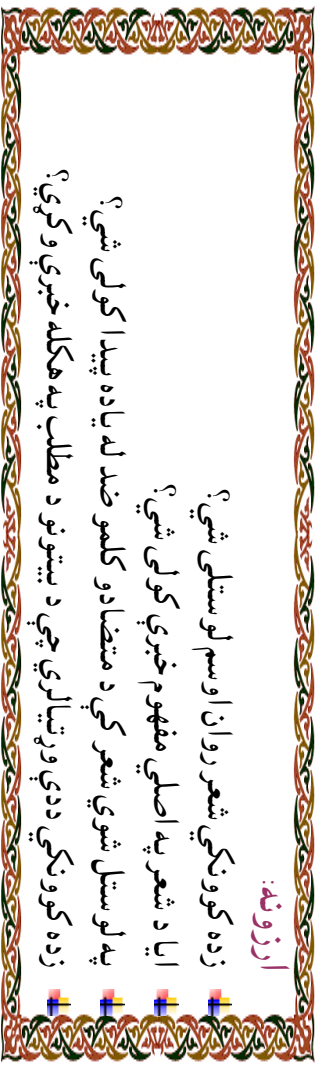 ارزونه:
زده کوونکي شعر روان او سم لوستلی شي؟
ایا د شعر په اصلي مفهوم خبرې کولی شي؟
په لوستل شوي شعر کې د متضادو کلمو ضد له یاده پیدا کولی شي؟
زده کوونکي ددې وړتیا لري چې د بیتونو د مطلب په هکله خبرې وکړي؟